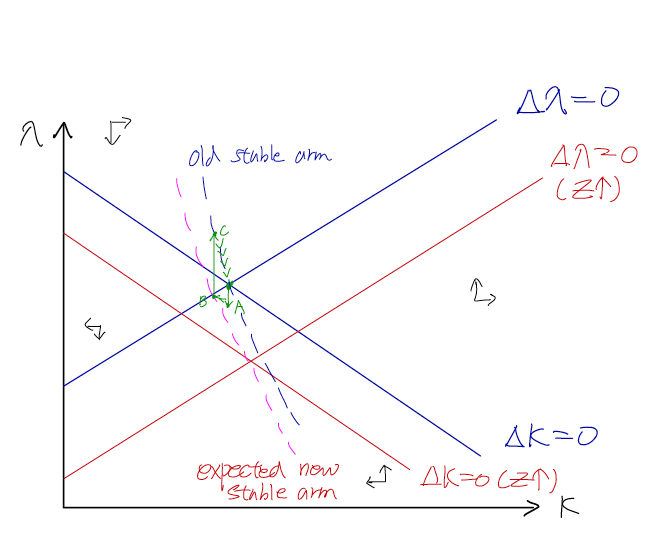 Δλ=0
λ
old stable arm
Δλ=0
(Z↑)
C
B
A
ΔK=0
expected new
stable arm
ΔK=0 (Z↑)
K